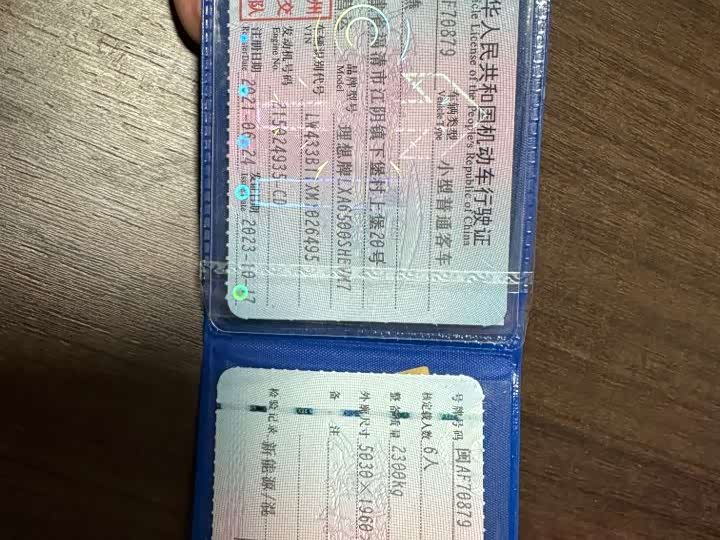 华人民共和国机动车行驶证
cle License of the People's Republic of China
F70879
车辆类型
Vehicle Type
小型普通客车
清市江阴镇下堡村上堡20号
品牌型号
Model
理想牌LXA6500SHEVM7
VIN
发动机号码
Engine No.
215024935-CD
注册日期
2021-06-24
发证日期
2023-10-17
州
交
队
号牌号码
闽AF70879
核定载人数
6人
整备质量
2300kg
外廓尺寸
5030×1960×
备 注
检验记录
新能源/混